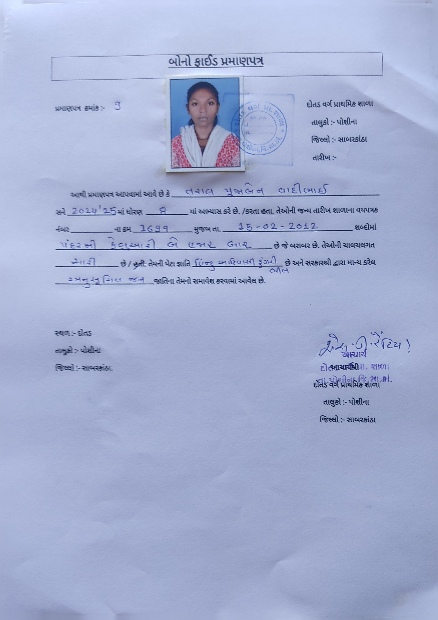 બોનો ફાઈડ પ્રમાણપત્ર
પ્રમાણપત્ર ક્રમાંક :- 9
દોતડ વર્ગ પ્રાથમિક શાળા
તાલુકો :- પોશીના
જિલ્લો :- સાબરકાંઠા
તારીખ :-
આથી પ્રમાણપત્ર આપવામાં આવે છે કે તરાલ પુજાબેન લાદીભાઈ
સને 2024'25 માં ધોરણ 8 માં અભ્યાસ કરે છે. /કરતા હતા. તેઓની જન્મ તારીખ શાળાના વયપત્રક
નંબર ના ક્રમ 1699 મુજબ તા. 15-02-2012 શબ્દોમાં
પંદરમી ફેબ્રુઆરી બે હજાર બાર છે જે બરાબર છે. તેઓની ચાલચલગત
સારી છે / હતી. તેમની પેટા જ્ઞાતિ હિન્દુ આદિવાસી ડુંગરી ભીલ છે અને સરકારશ્રી દ્વારા માન્ય કરેલ
અનુસૂચિત જન જાતિના તેમનો સમાવેશ કરવામાં આવેલ છે.
સ્થળ :- દોતડ
તાલુકો :- પોશીના
જિલ્લો :- સાબરકાંઠા.
આચાર્ય
આચાર્યશ્રી
દોતડ વર્ગ પ્રાથમિક શાળા
તાલુકો :- પોશીના
જિલ્લો :- સાબરકાંઠા